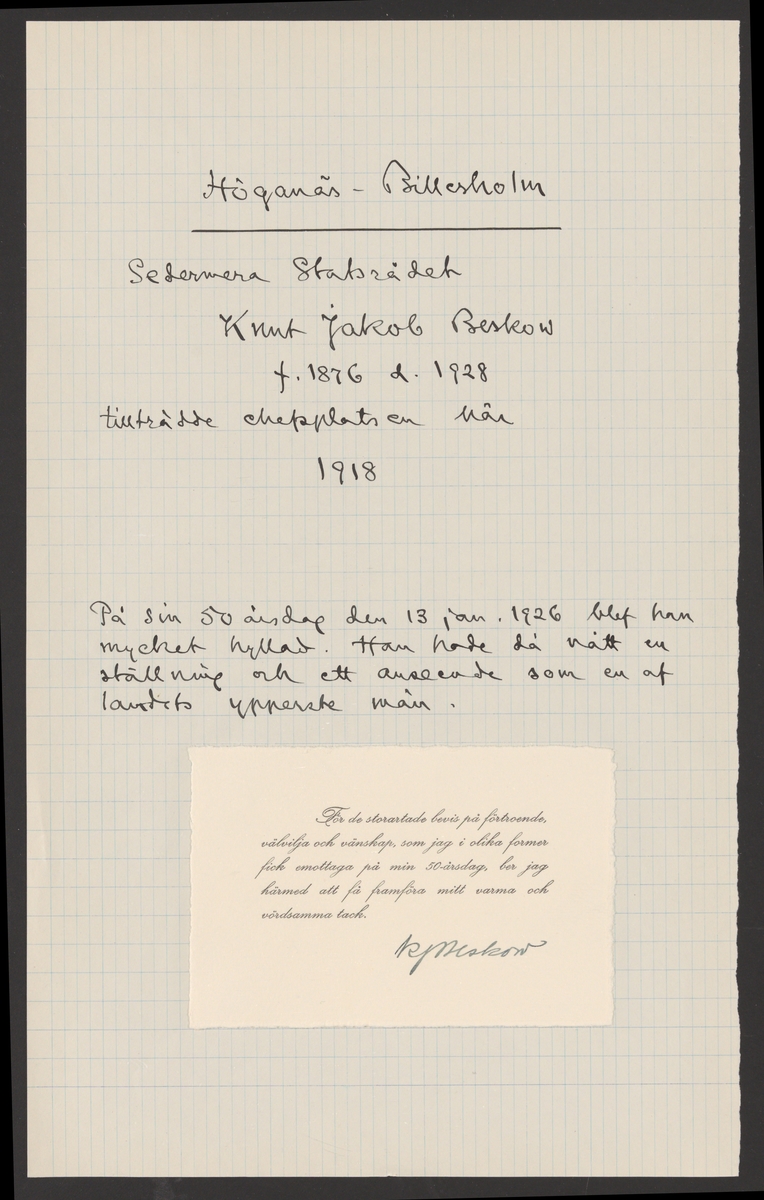 Höganäs - Billesholm
Sedermera Statsrådet
Knut Jakob Beskow
f. 1876 d. 1928
tillträdde chefsplatsen här
1918
På sin 50 årsdag den 13 jan. 1926 blef han
mycket hyllad. Han hade då nått en
ställning och ett anseende som en af
landets ypperste män.
För de storartade bevis på förtroende,
välvilja och vänskap, som jag i olika former
fick emottaga på min 50-årsdag, ber jag
härmed att få framföra mitt varma och
vördsamma tack.
KJBeskow